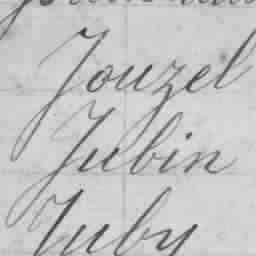 Jouzel
Jubin
Juby